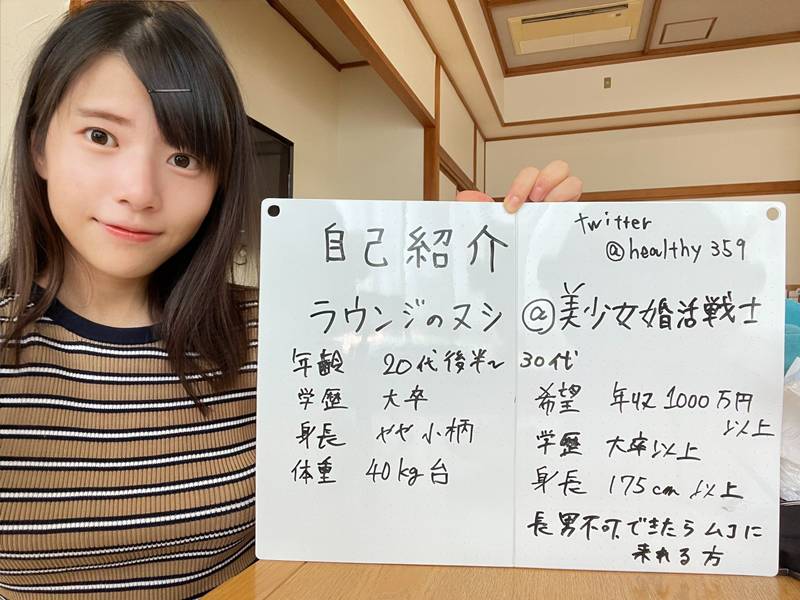 自己紹介
twitter
@healthy359
ラウンジのヌシ@美少女婚活戦士
年齢 20代後半~30代
学歴 大卒
身長 やや小柄
体重 40kg台
希望 年収1000万円
以上
学歴 大卒以上
身長 175cm以上
長男不可。できたらムコに
来れる方